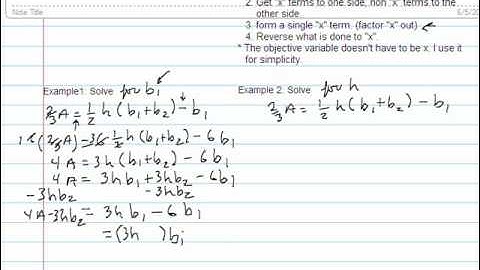 Note Title
6/5/20
2. Get "x" terms to one side, non "x" terms to the
other side.
3. form a single "x" term. (factor "x" out)
4. Reverse what is done to "x".
* The objective variable doesn't have to be x. I use it
for simplicity.
Example1. Solve for b₁
2/3 A = 1/2 h (b₁+b₂) - b₁
(2/3 A) = 1/2 h (b₁+b₂) - 6b₁
4A = 3h (b₁+b₂) - 6b₁
4A = 3hb₁ + 3hb₂ - 6b₁
-3hb₂ -3hb₂
4A-3hb₂ = 3hb₁ - 6b₁
= (3h )b₁
Example 2. Solve for h
2/3 A = 1/2 h (b₁+b₂) - b₁